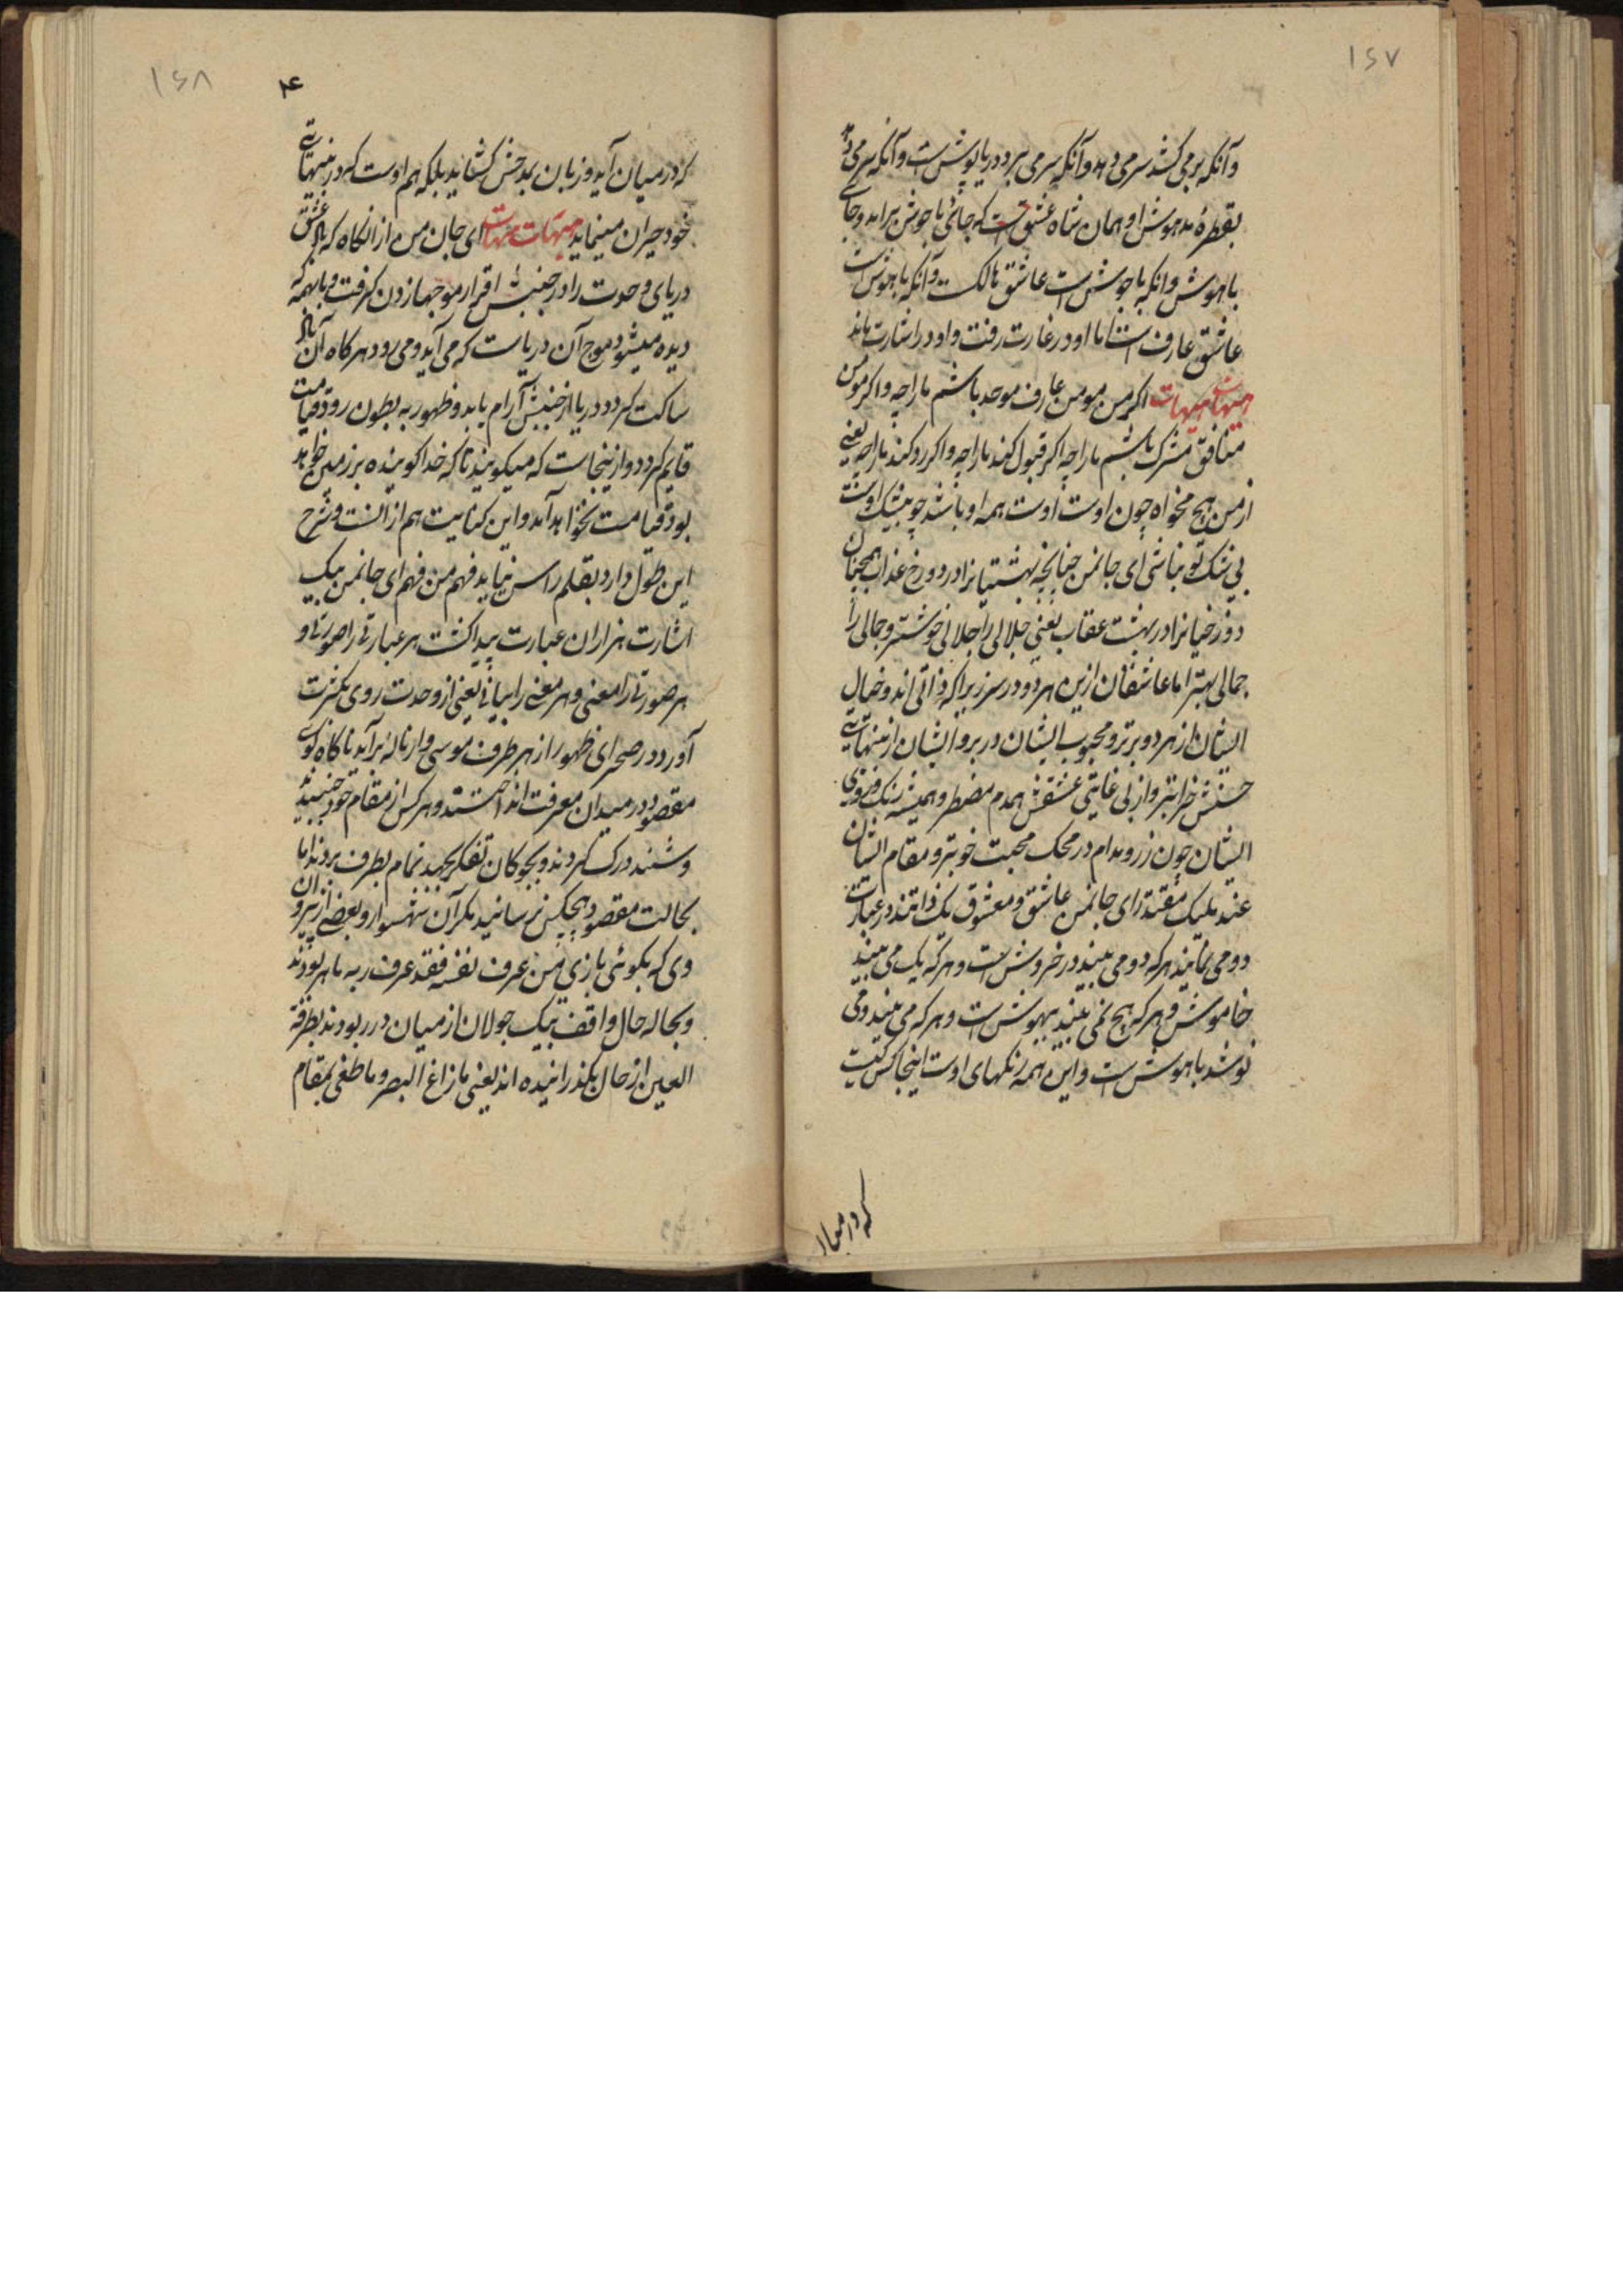 ۱۶۷
وآنکه برمی کشد سرمی دهد وآنکه سرمی برد دریا پوش ست وآنکه سرمی دهد
بقطرهٔ مدهوش او همان شاه عشق ست که جائی با جوش برامد وجای
باهوش وانکه باجوش ست عاشق هالک ست وآنکه باهوش ست
عاشق عارف ست اما او در غارت رفت واو در اشارت ماند
هیهات هیهات اکر من مومن عارف موحد باشم ما را چه واکر مومن
منافق مشرک باشم ما را چه اکر قبول کند ما را چه واکر رد کند ما را چه یعنی
از من هیچ مخواه چون اوست اوست همه او باشد چو بیشک اوست
بی شک تو نباشی ای جانمن چنانچه بهشتیانرا در دوزخ عذاب همچنان
دوزخیانرا در بهشت عقاب یعنی جلالی را جلالی خوشتر وجمالی را
جمالی بهتر اما عاشقان ازین هر دو در سرزیراکه ذاتی اند وخصال
ایشان از هر دو برتر ومحبوب ایشان در بر وایشان از بینهایتی
حسنش خرابتر واز بی غایتی عشقش همدم مضطر وهمیشه رنک وبوی
ایشان چون زر ومدام در محک محبت خوبتر ومقام ایشان
عند ملیک مقتدر ای جانمن عاشق ومعشوق یک ذاتند در عبارت
دو می نمایند هرکه دو می بیند در خروش ست وهرکه یک می بیند
خاموش وهرکه هیچ نمی بیند بیهوش ست وهرکه می بیند ومی
نوشد باهوش ست واین همه رنکهای اوست اینجا کس نیست
که در میان
۱۶۸
که در میان آید وزبان بدخش کشاید بلکه هم اوست که در بینهایتی
خود حیران مینماید هیهات هیهات ای جان من از انکاه که باد عشق
دریای وحدت را در جنبش اقرار موجها زدن کرفت واینهمه که
دیده میشود موج آن دریاست که می آید ومی رود هرکاه آن باد
ساکت کردد دریا از جنبش آرام یابد وظهور به بطون رود قیامت
قایم کردد وازینجاست که میکویند تاکه خدا کوینده بر زمین خواهد
بود قیامت نخواهد آمد واین کنایت هم از آنست وشرح
این طول دارد بقلم راس نیاید فهم من فهم ای جانمن بیک
اشارت هزاران عبارت پیدا کشت هر عبارتی را صورتی و
هر صورتی را معنی وهر معنی را بیانی یعنی از وحدت روی بکثرت
آورد در صحرای ظهور از هر طرف موسی وار ناله برآمد ناکاه کوی
مقصود در میدان معرفت انداختند وهرکس از مقام خود جنبیدند
وشنید درک کردند وبچوکان تفکر بجهد تمام بطرف بردند اما
بحالت مقصود هیچکس نرسانید مکر آن شهسوار وبعضی از پیروان
وی که بکوئی بازی من عرف نفسه فقد عرف ربه ماهر بودند
وبحاله حال واقف بیک جولان از میان در ربودند بطرفة
العین از حال بکذرانیده اند یعنی ما زاغ البصر وما طغی بمقام